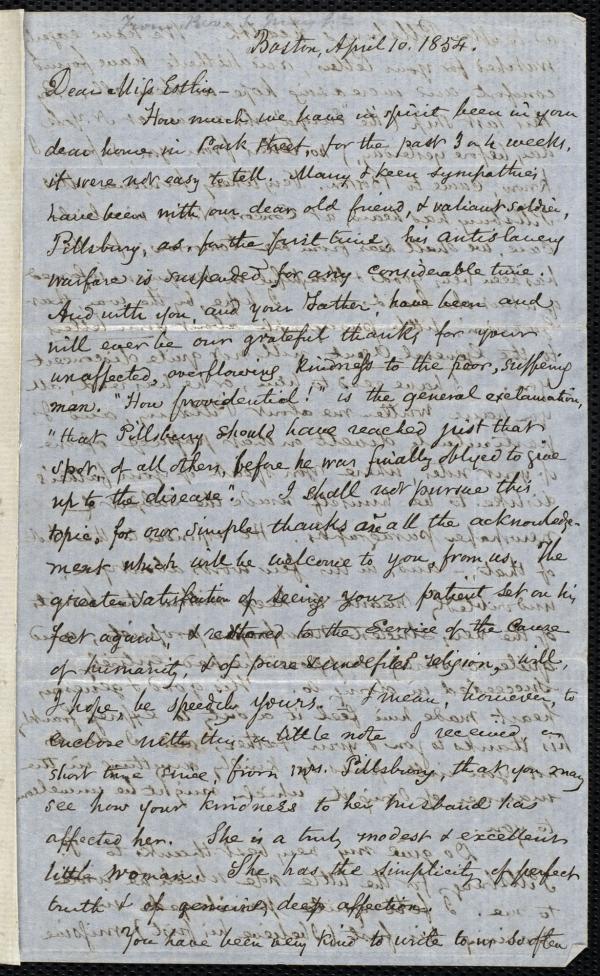 From Rev. S. May Jr.
Boston, April 10. 1854.
Dear Miss Esthir-
How much we have in spirit been in your
dear home in Park Street, for the past 3 or 4 weeks,
it were not easy to tell. Many & keen sympathies
have been with our dear old friend & valiant soldier,
Pillsbury, as, for the first time, his antislavery
warfare is suspended for any considerable time.
And with you, and your Father, have been and
will ever be our grateful thanks for your
unaffected, overflowing kindness to the poor, suffering
man. "How providential!" is the general exclamation,
"that Pillsbury should have reached just that
spot, of all others, before he was finally obliged to give
up to the disease". I shall not pursue this
topic, for our simple thanks are all the acknowledg-
ment which will be welcome to you from us. The
greater satisfaction of seeing your patient set on his
feet again, & restored to the Service of the Cause
of humanity, & of pure & undefiled religion, will,
I hope be speedily yours. I mean, however, to
enclose with this, a little note I received, a
short time since, from Mrs. Pillsbury, that you may
see how your kindness to her husband has
affected her. She is a true, modest & excellent
little woman. She has the simplicity of perfect
truth & of genuine, deep affection.
You have been very kind to write to us so often